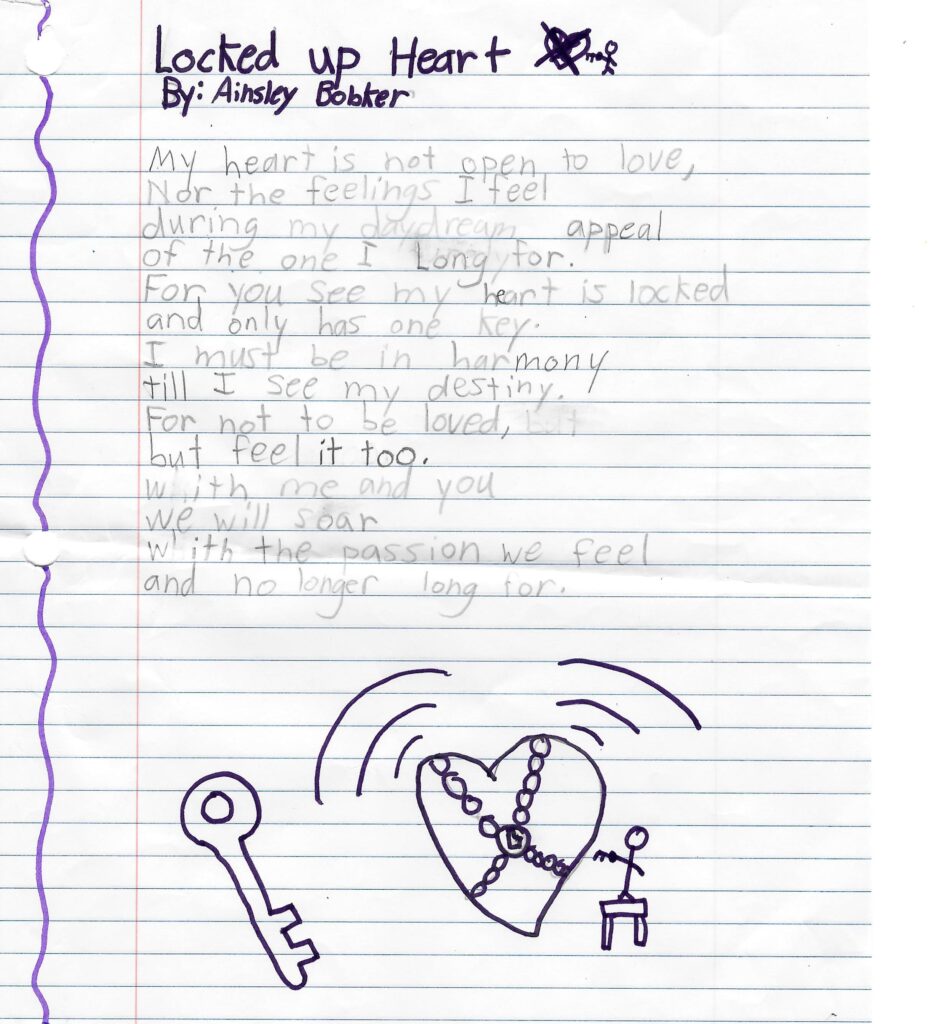 Locked up Heart
By: Ainsley Bobker
My heart is not open to love,
Nor the feelings I feel
during my daydream appeal
of the one I Long for.
For you see my heart is locked
and only has one key.
I must be in harmony
till I see my destiny.
For not to be loved,
but feel it too.
whith me and you
we will soar
whith the passion we feel
and no longer long for.